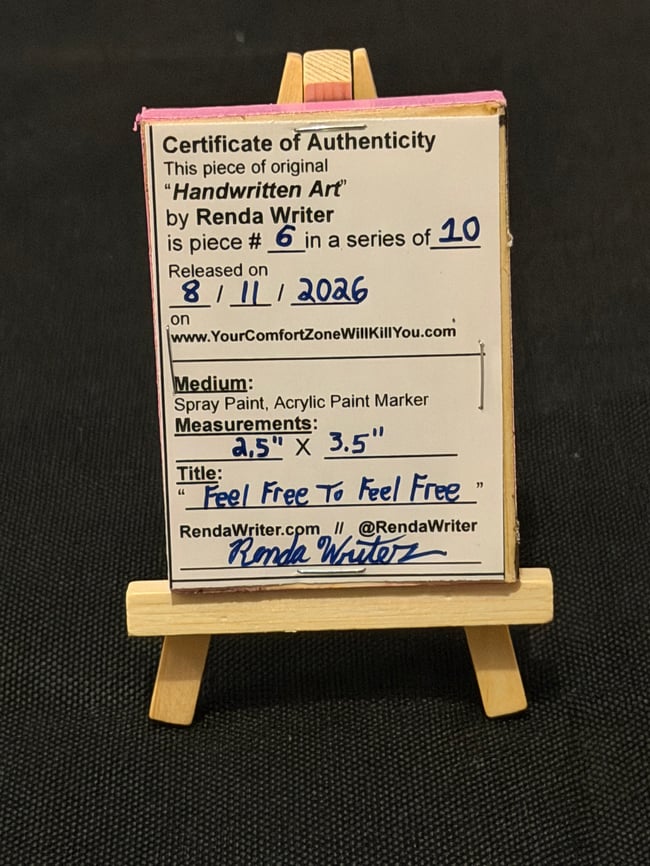 Certificate of Authenticity
This piece of original
“Handwritten Art”
by Renda Writer
is piece # 6 in a series of 10
Released on
8 / 11 / 2026
on
www.YourComfortZoneWillKillYou.com
Medium:
Spray Paint, Acrylic Paint Marker
Measurements:
2.5" X 3.5"
Title:
“ Feel Free To Feel Free ”
RendaWriter.com // @RendaWriter
Renda Writer